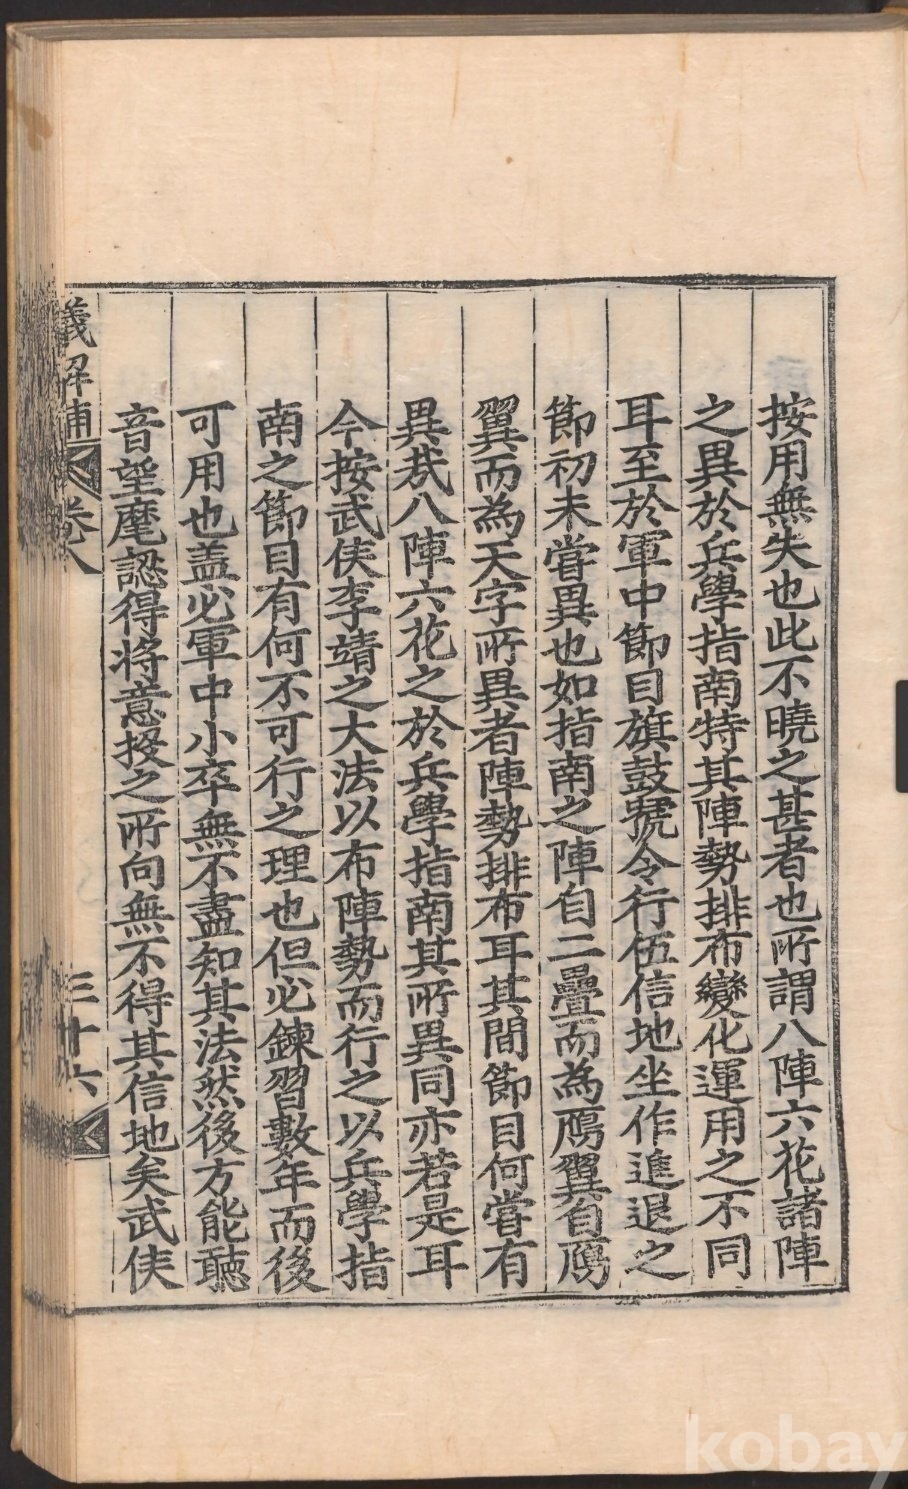 按用無失也此不曉之甚者也所謂八陣六花諸陣
之異於兵學指南特其陣勢排布變化運用之不同
耳至於軍中節目旗鼓號令行伍信地坐作進退之
節初未嘗異也如指南之陣自二疊而為鴈翼自鴈
翼而為天字所異者陣勢排布耳其間節目何嘗有
異㢤八陣六花之於兵學指南其所異同亦若是耳
今按武侯李靖之大法以布陣勢而行之以兵學指
南之節目有何不可行之理也但必鍊習數年而後
可用也盖必軍中小卒無不盡知其法然後方能聽
音望麾認得将意投之所向無不得其信地矣武侯
義解補 卷八 三十六
kobay